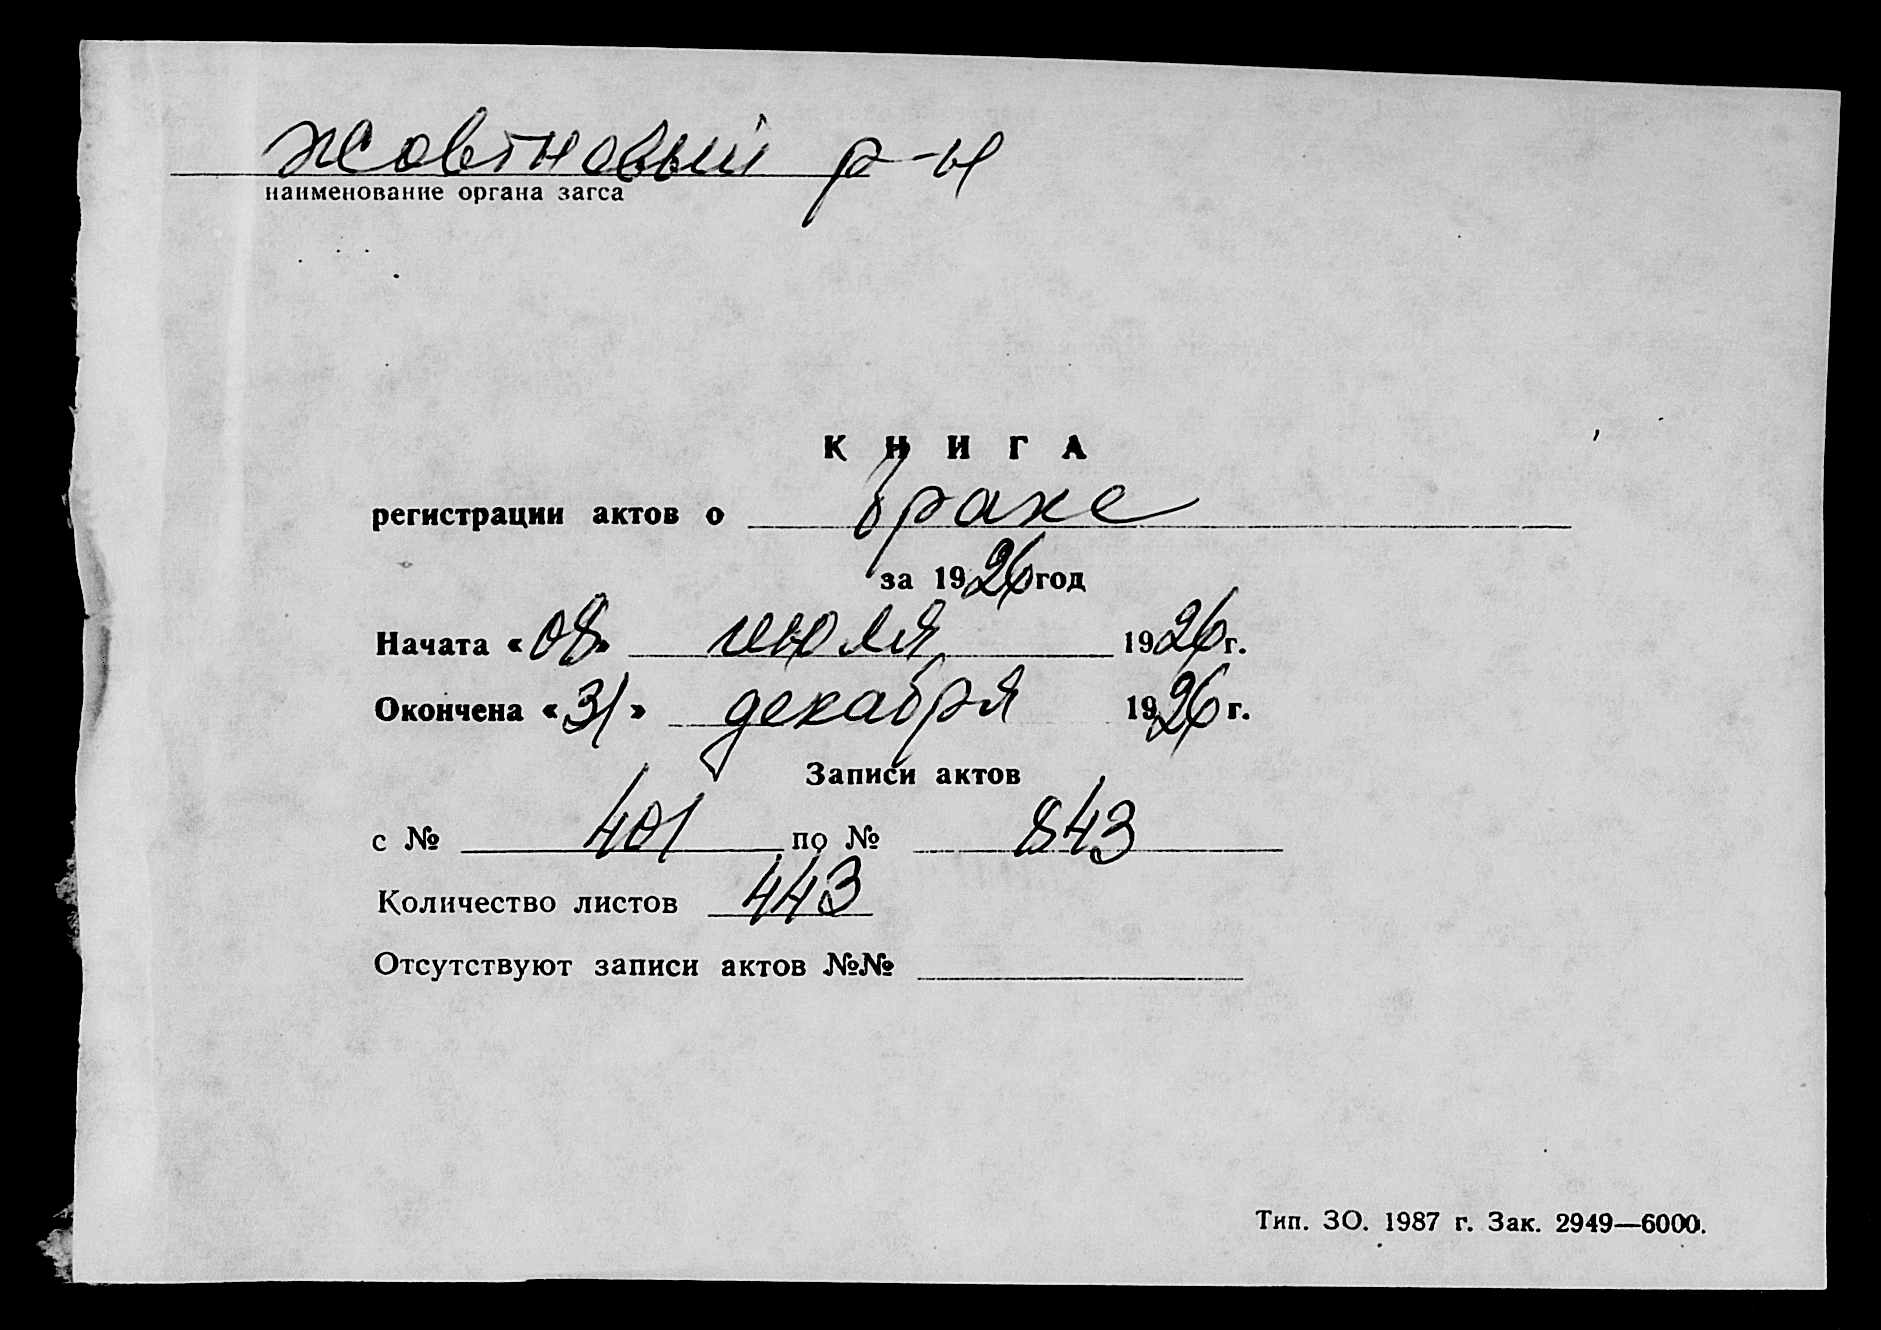 Жовтневый р-н
наименование органа загса
КНИГА
регистрации актов о браке
за 1926 год
Начата «08» июля 1926 г.
Окончена «31» декабря 1926 г.
Записи актов
с № 401 по № 843
Количество листов 443
Отсутствуют записи актов №№
Тип. ЗО. 1987 г. Зак. 2949—6000.